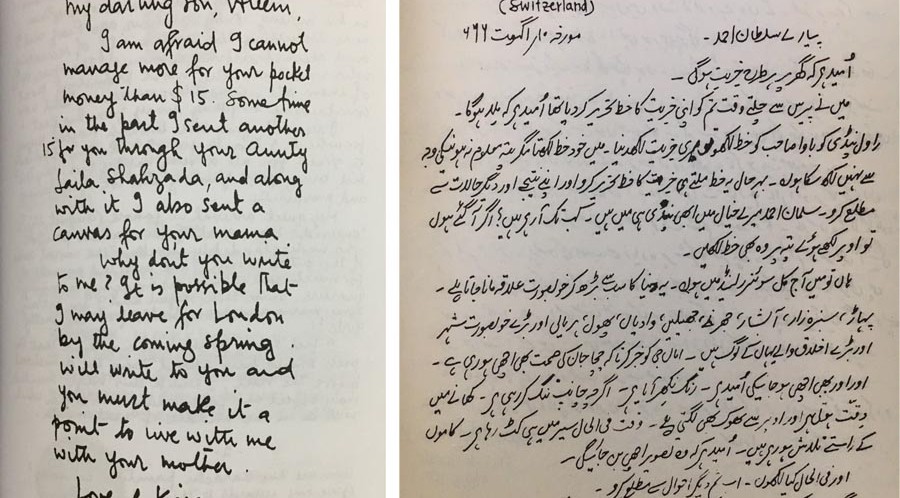 My darling son, Aleem,
I am afraid I cannot
manage more for your pocket
money than $15. Some time
in the past I sent another
15 for you through your Aunty
Laila Shahzada, and along
with it I also sent a
canvas for your mama
Why don't you write
to me? It is possible that
I may leave for London
by the coming spring.
will write to you and
you must make it a
point to live with me
with your mother.
Love & Kisses
(Switzerland)
مورخہ ۱۰ اگست ۶۶ء
پیارے سلطان احمد۔
اُمید ہے کہ گھر پر ہر طرح خیریت ہوگی۔
میں نے پیرس سے چلتے وقت تم کو اپنی خیریت کا خط تحریر کر دیا تھا اُمید ہے کہ ملا ہوگا۔
راولپنڈی کو باوا صاحب کو خط لکھو تو میری خیریت لکھ دینا۔ میں خود خط لکھتا مگر پتہ معلوم نہ ہونیکی وجہ
سے نہیں لکھ سکا ہوں۔ بہرحال یہ خط ملتے ہی خیریت کا خط تحریر کرو اور اپنے نتیجے اور دیگر حالات سے
مطلع کرو۔ سلمان احمد میرے خیال میں ابھی پنڈی ہی میں ہیں۔ کب تک آرہے ہیں؟ اگر آگئے ہوں
تو اوپر لکھے ہوئے پتہ پر وہ بھی خط لکھیں۔
ہاں تو میں آج کل سوئٹزرلینڈ میں ہوں۔ یہ دنیا کا سب سے بڑھ کر خوبصورت علاقہ مانا جاتا ہے۔
پہاڑ، سبزہ زار، آبشار، جھرنے، جھیلیں، وادیاں، پھول، ہریالی اور بڑے خوبصورت شہر
اور بڑے اخلاق والے یہاں کے لوگ ہیں۔ اماں جی کو خبر کرنا کہ چچا جان کی صحت بھی اچھی ہو رہی ہے۔
اور اور بھی اچھی ہو جانیکی اُمید ہے۔ رنگ نکھر آیا ہے۔ اگرچہ چانپ تنگ کر رہی ہے۔ کھانے میں
دقت ہے اور ادہر سے بھوک بھی لگتی ہے۔ وقت فی الحال سیر میں ہی کٹ رہا ہے۔ کاموں
کے راستے تلاش ہو رہے ہیں۔ اُمید ہے کہ وہ تصویر اچھی بن جائیگی۔
اور فی الحال کیا لکھوں۔ اب تم دیگر احوال سے مطلع کرو۔